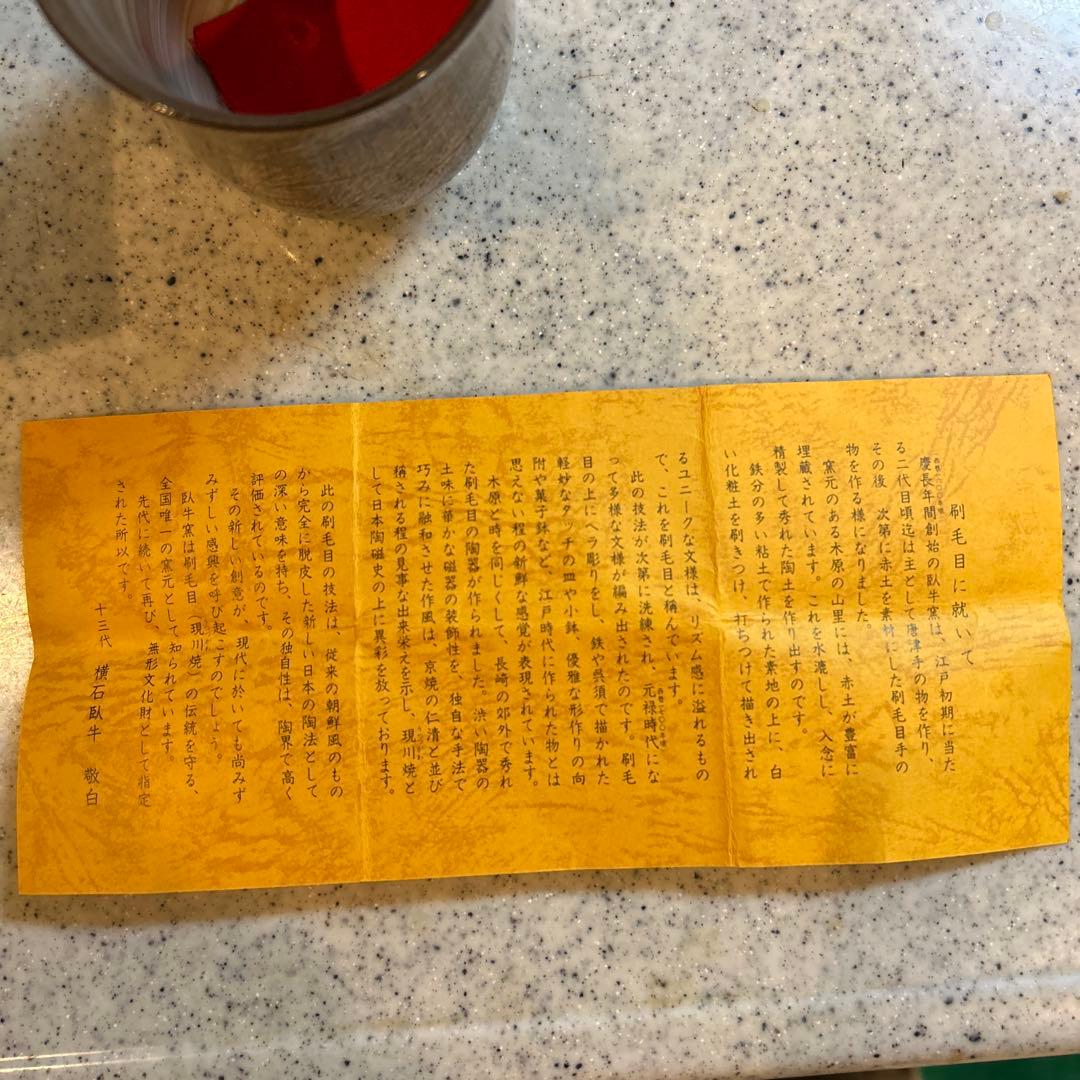 刷毛目に就いて
慶長年間創始の臥牛窯は、江戸初期に当た
る二代目頃迄は主として唐津手の物を作り、
その後、次第に赤土を素材にした刷毛目手の
物を作る様になりました。
窯元のある木原の山里には、赤土が豊富に
埋蔵されています。これを水漉しし、入念に
精製して秀れた陶土を作り出すのです。
鉄分の多い粘土で作られた素地の上に、白
い化粧土を刷きつけ、打ちつけて描き出され
るユニークな文様は、リズム感に溢れるもの
で、これを刷毛目と称んでいます。
此の技法が次第に洗練され、元禄時代にな
って多様な文様が編み出されたのです。刷毛
目の上にヘラ彫りをし、鉄や呉須で描かれた
軽妙なタッチの皿や小鉢、優雅な形作りの向
附や菓子鉢など、江戸時代に作られた物とは
思えない程の新鮮な感覚が表現されています。
木原と時を同じくして、長崎の郊外で秀れ
た刷毛目の陶器が作られました。渋い陶器の
土味に華かな磁器の装飾性を、独自な手法で
巧みに融和させた作風は、京焼の仁清と並び
稱される程の見事な出来栄えを示し、現川焼と
して日本陶磁史の上に異彩を放っております。
此の刷毛目の技法は、従来の朝鮮風のもの
から完全に脱皮した新しい日本の陶法として
の深い意味を持ち、その独自性は、陶界で高く
評価されているのです。
その新しい創意が、現代に於いても尚みず
みずしい感興を呼び起こすのでしょう。
臥牛窯は刷毛目（現川焼）の伝統を守る、
全国唯一の窯元として知られています。
先代に続いて再び、無形文化財として指定
された所以です。
十三代 横石臥牛 敬白